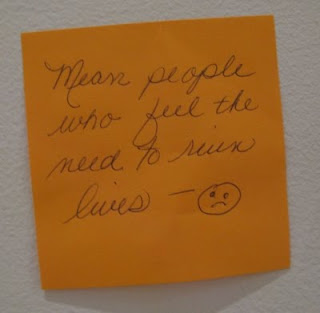 Mean people
who feel the
need to ruin
lives —